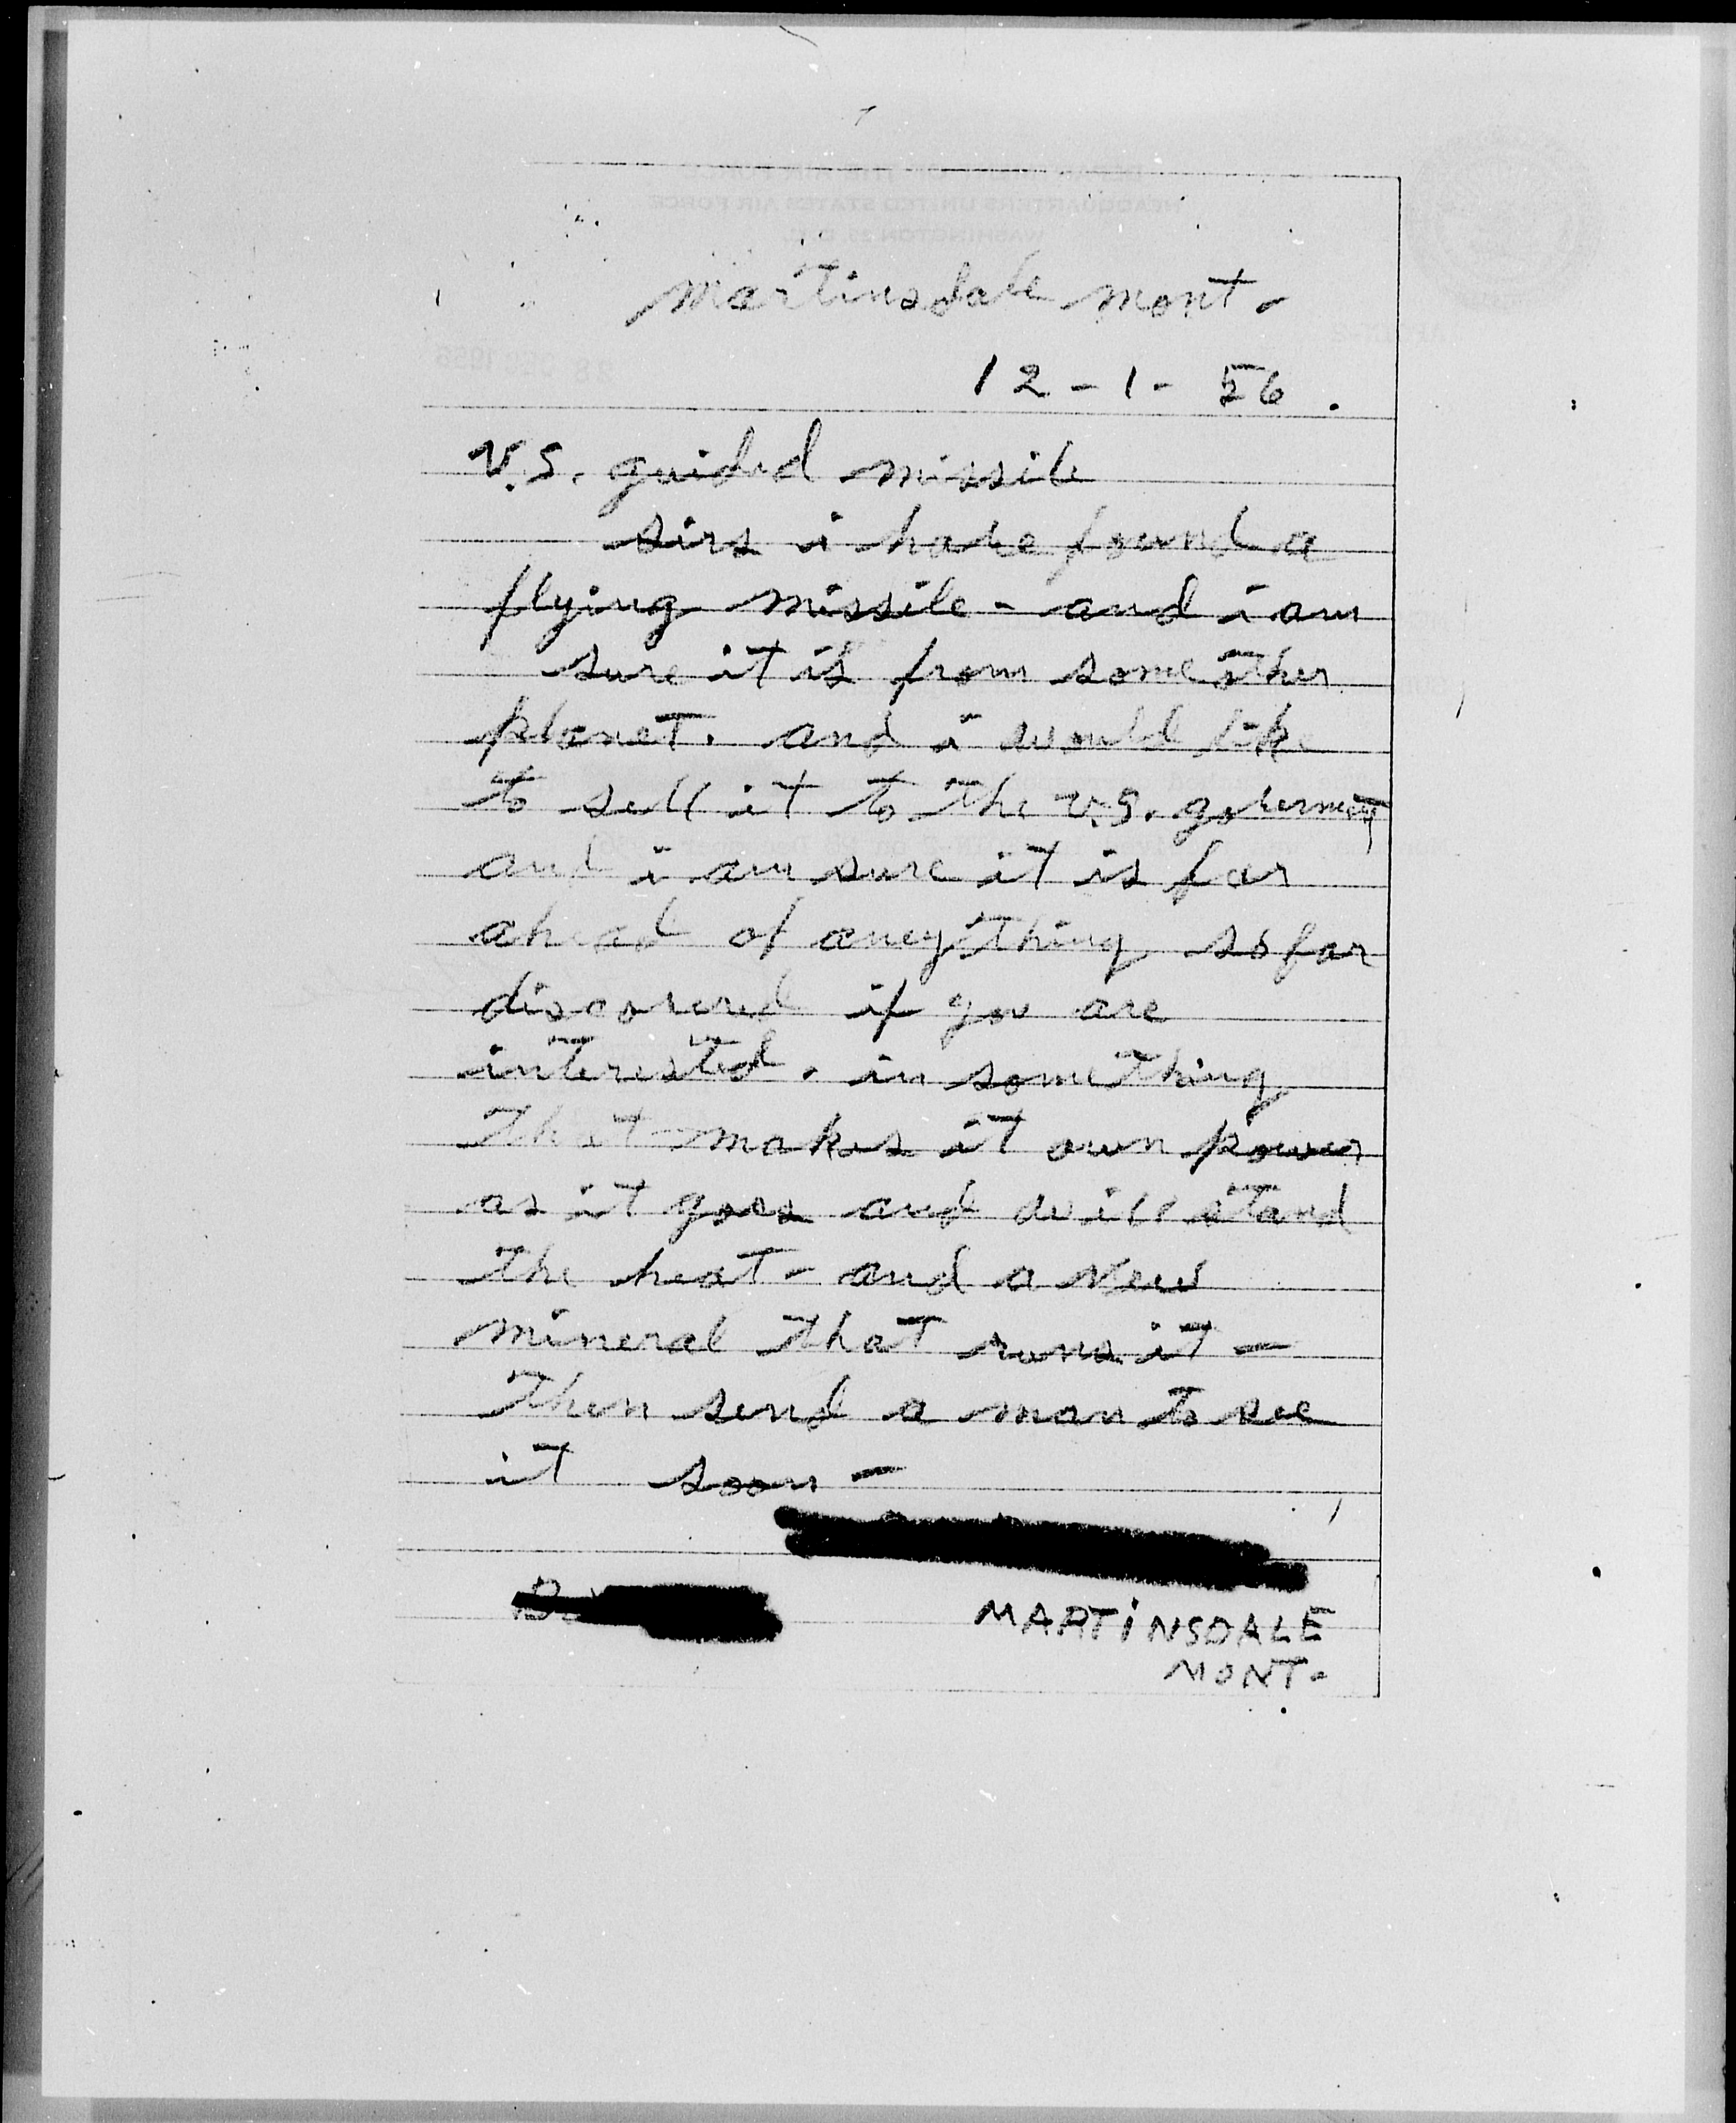 martinsdale mont-
12-1-56.
U.S. guided missile
sirs i have found a
flying missile - and i am
sure it is from some other
planet. and i would like
to sell it to the U.S. goverment
and i am sure it is far
ahead of aneything so far
discovered if you are
interested. in something
that makes it own power
as it goes and will stand
the heat - and a new
mineral that runs it -
then send a man to see
it soon -
MARTiNSDALE
MONT-